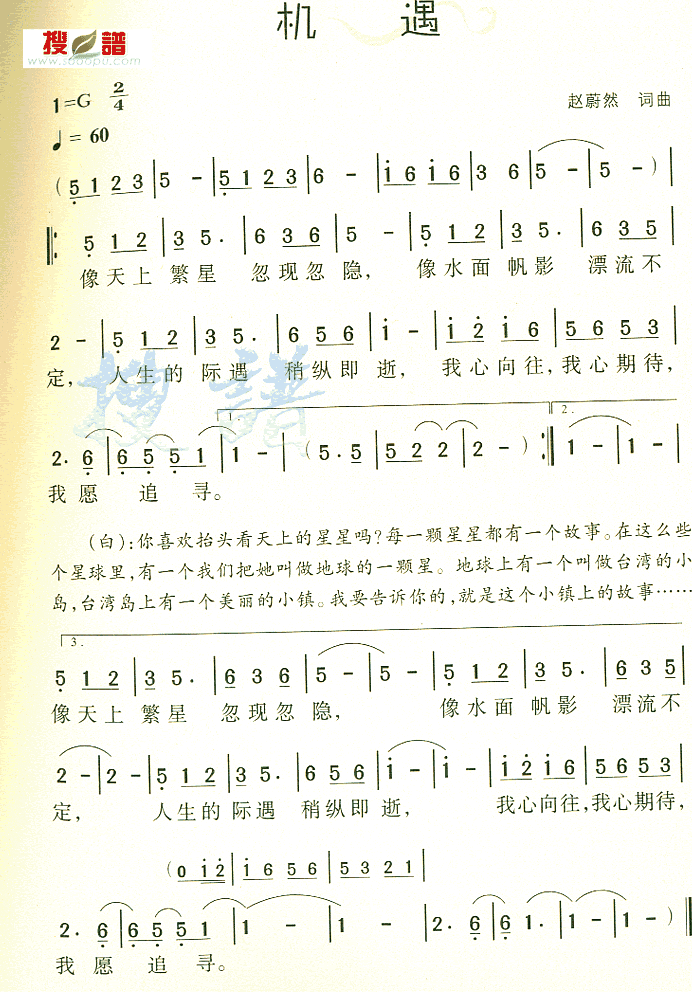 机 遇
搜 譜
www.sooopu.com
1=G 2/4
赵蔚然 词曲
♩= 60
( 5 1 2 3 | 5 - | 5 1 2 3 | 6 - | i 6 i 6 | 3 6 | 5 - | 5 - ) |
‖: 5 1 2 | 3 5. | 6 3 6 | 5 - | 5 1 2 | 3 5. | 6 3 5 |
像天上 繁星 忽现忽隐, 像水面 帆影 漂流不
2 - | 5 1 2 | 3 5. | 6 5 6 | i - | i 2 i 6 | 5 6 5 3 |
定, 人生的 际遇 稍纵即 逝, 我心向往,我心期待,
搜 譜
1.
2.
2. 6 | 6 5 5 1 | 1 - | ( 5. 5 | 5 2 2 | 2 - ) :‖ 1 - | 1 - |
我愿 追 寻。
(白):你喜欢抬头看天上的星星吗?每一颗星星都有一个故事。在这么些
个星球里,有一个我们把她叫做地球的一颗星。地球上有一个叫做台湾的小
岛,台湾岛上有一个美丽的小镇。我要告诉你的,就是这个小镇上的故事……
3.
5 1 2 | 3 5. | 6 3 6 | 5 - | 5 - | 5 1 2 | 3 5. | 6 3 5 |
像天上 繁星 忽现忽 隐, 像水面 帆影 漂流不
2 - | 2 - | 5 1 2 | 3 5. | 6 5 6 | i - | i - | i 2 i 6 | 5 6 5 3 |
定, 人生的 际遇 稍纵即 逝, 我心向往,我心期待,
( 0 i 2 | i 6 5 6 | 5 3 2 1 |
2. 6 | 6 5 5 1 | 1 - | 1 - | 2. 6 | 6 1. | 1 - | 1 - ) ‖
我愿 追 寻。